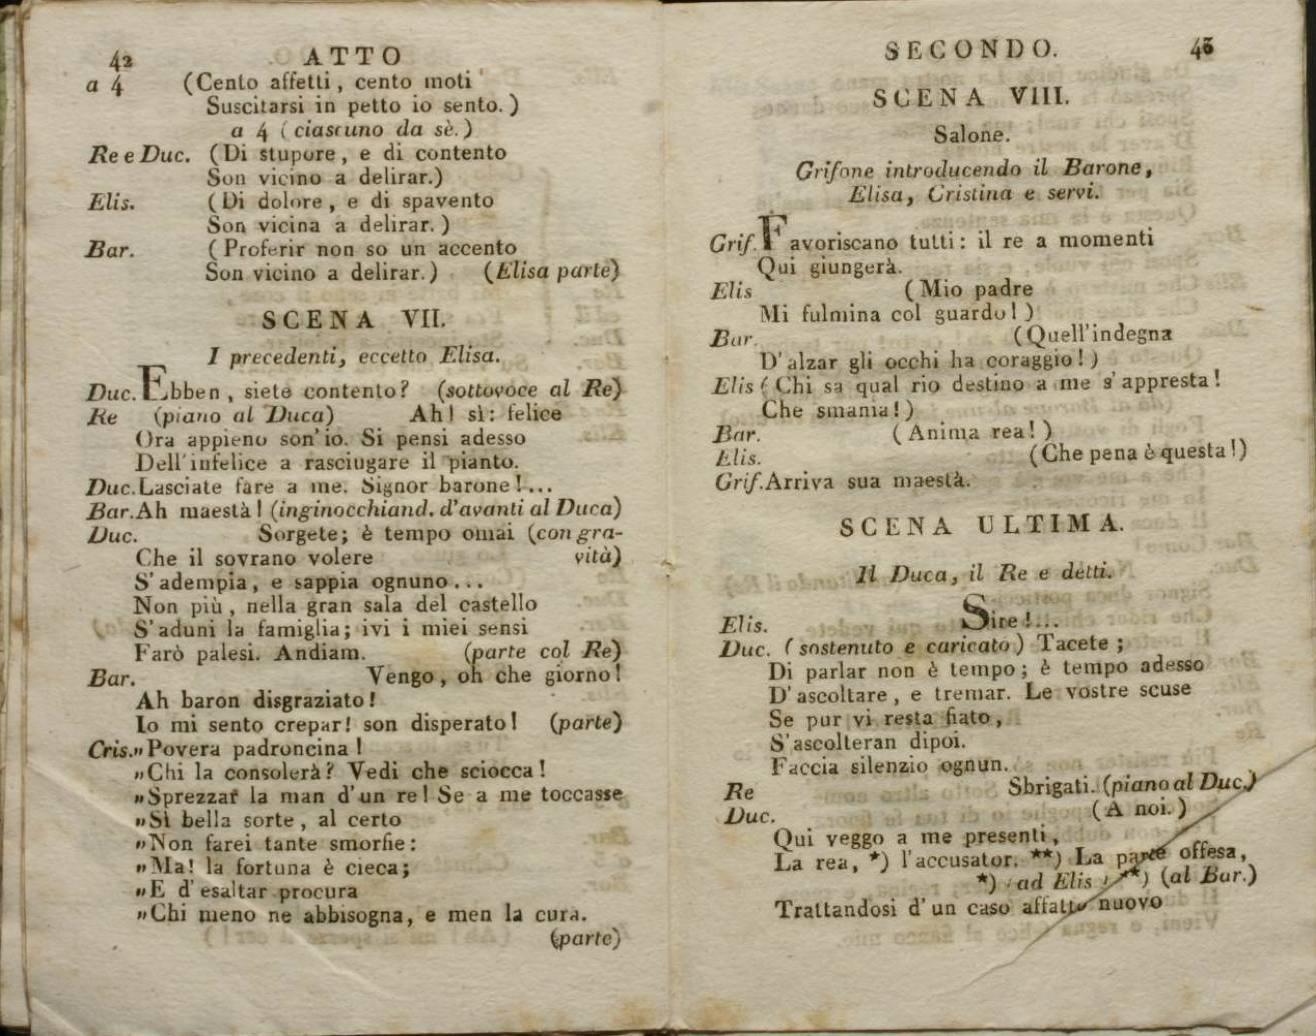 42 ATTO
a 4 (Cento affetti, cento moti
Suscitarsi in petto io sento.)
a 4 (ciascuno da sè.)
Re e Duc. (Di stupore, e di contento
Son vicino a delirar.)
Elis. (Di dolore, e di spavento
Son vicina a delirar.)
Bar. (Proferir non so un accento
Son vicino a delirar.) (Elisa parte)
SCENA VII.
I precedenti, eccetto Elisa.
Duc. Ebben, siete contento? (sottovoce al Re)
Re (piano al Duca) Ah! sì: felice
Ora appieno son' io. Si pensi adesso
Dell'infelice a rasciugare il pianto.
Duc. Lasciate fare a me. Signor barone!...
Bar. Ah maestà! (inginocchiand. d'avanti al Duca)
Duc. Sorgete; è tempo omai (con gra-
Che il sovrano volere vità)
S'adempia, e sappia ognuno...
Non più, nella gran sala del castello
S'aduni la famiglia; ivi i miei sensi
Farò palesi. Andiam. (parte col Re)
Bar. Vengo, oh che giorno!
Ah baron disgraziato!
Io mi sento crepar! son disperato! (parte)
Cris. „Povera padroncina!
„Chi la consolerà? Vedi che sciocca!
„Sprezzar la man d'un re! Se a me toccasse
„Sì bella sorte, al certo
„Non farei tante smorfie:
„Ma! la fortuna è cieca;
„E d'esaltar procura
„Chi meno ne abbisogna, e men la cura.
(parte)
SECONDO. 43
SCENA VIII.
Salone.
Grifone introducendo il Barone,
Elisa, Cristina e servi.
Grif. Favoriscano tutti: il re a momenti
Qui giungerà.
Elis (Mio padre
Mi fulmina col guardo!)
Bar. (Quell'indegna
D'alzar gli occhi ha coraggio!)
Elis (Chi sa qual rio destino a me s'appresta!
Che smania!)
Bar. (Anima rea!)
Elis. (Che pena è questa!)
Grif. Arriva sua maestà.
SCENA ULTIMA.
Il Duca, il Re e detti.
Elis. Sire!...
Duc. (sostenuto e caricato) Tacete;
Di parlar non è tempo; è tempo adesso
D'ascoltare, e tremar. Le vostre scuse
Se pur vi resta fiato,
S'ascolteran dipoi.
Faccia silenzio ognun.
Re Sbrigati. (piano al Duc.)
Duc. (A noi.)
Qui veggo a me presenti,
La rea, *) l'accusator. **) La parte offesa,
*) (ad Elis) **) (al Bar.)
Trattandosi d'un caso affatto nuovo